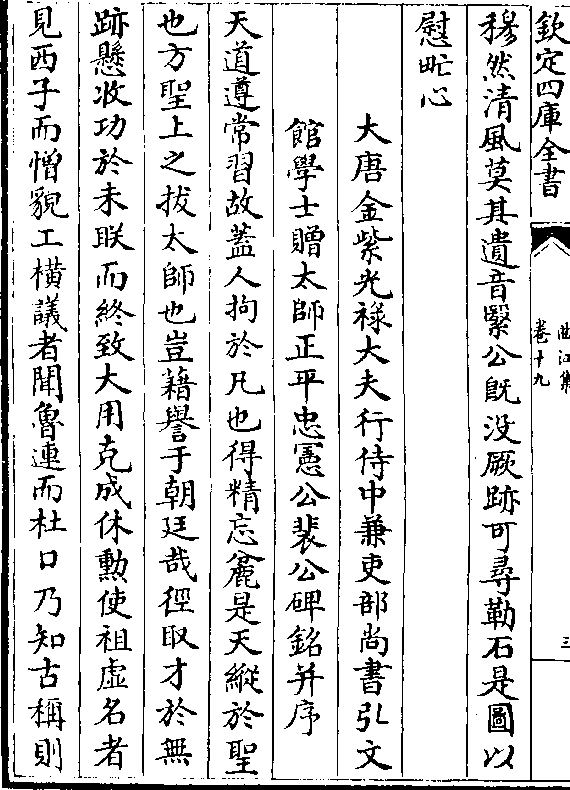 欽定四庫全書
曲江集
卷十九
三
穆然清風莫其遺音緊公既没厥跡可尋勒石是圖以
慰甿心
大唐金紫光祿大夫行侍中兼吏部尚書弘文
館學士贈太師正平忠憲公裴公碑銘并序
天道遵常習故蓋人拘於凡也得精忘麄是天縱於聖
也方聖上之拔太師也豈藉譽于朝廷哉徑取才於無
跡懸收功於未眹而終致大用克成休勲使祖虚名者
見西子而憎貌工橫議者聞魯連而杜口乃知古稱則